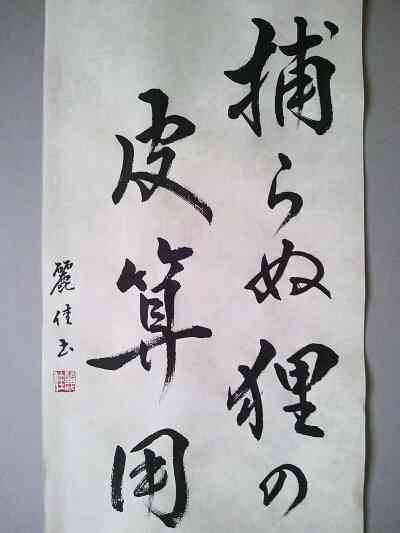 捕らぬ狸の
皮算用
麗佳書